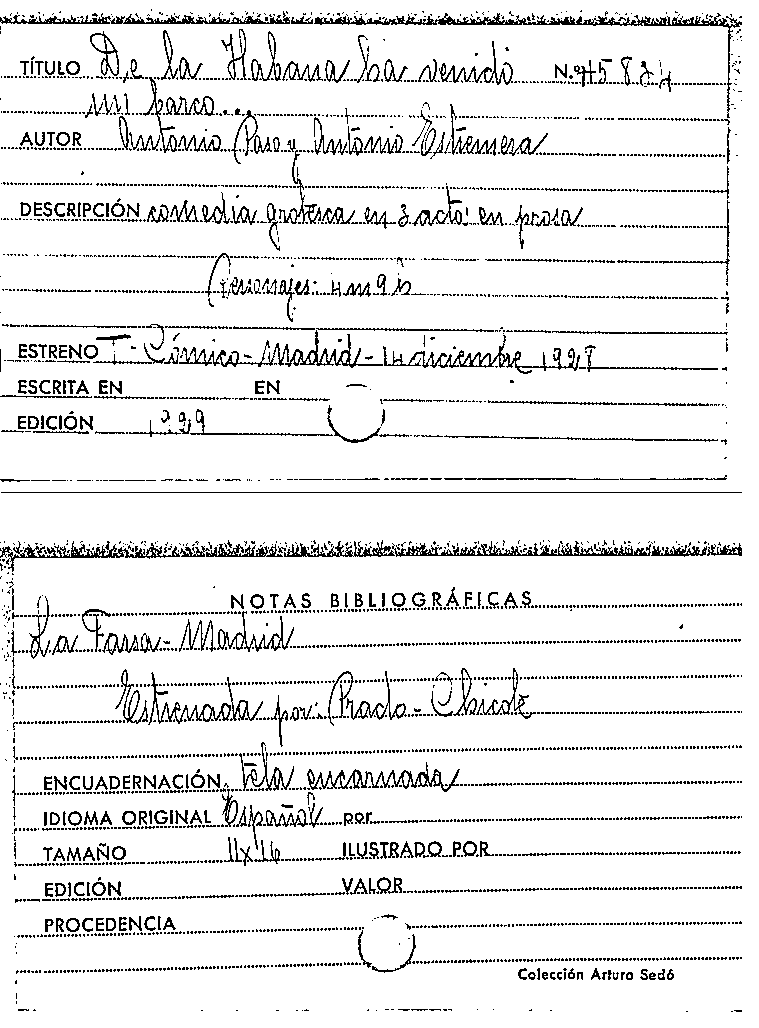 TÍTULO De la Habana ha venido N.º 45824
un barco...
AUTOR Antonio Paso y Antonio Estremera
DESCRIPCIÓN comedia grotesca en 3 actos en prosa
Personajes: 4 m 9 h
ESTRENO T. Cómico - Madrid - 14 diciembre 1928
ESCRITA EN EN
EDICIÓN 1929
NOTAS BIBLIOGRÁFICAS
La Farsa - Madrid
Estrenada por: Prado - Chicote
ENCUADERNACIÓN tela encarnada
IDIOMA ORIGINAL Español por
TAMAÑO 11 x 16 ILUSTRADO POR
EDICIÓN VALOR
PROCEDENCIA
Colección Arturo Sedó